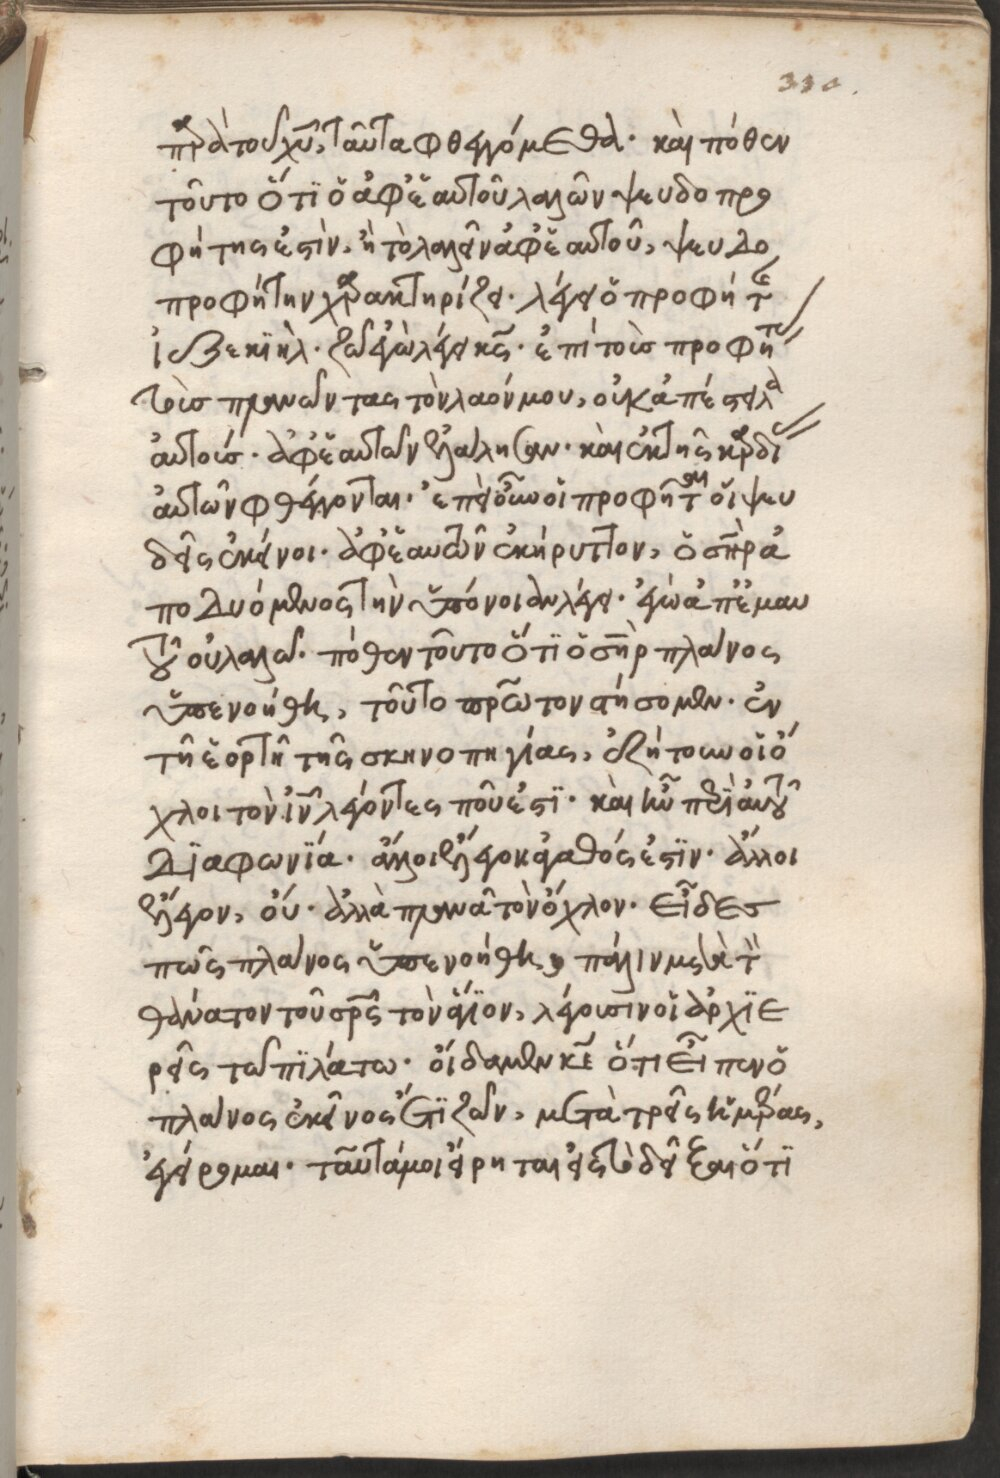 330.
παρὰ τοῦ χῦ, ταῦτα φθεγγόμεθα· καὶ πόθεν
τοῦτο ὅτϊ ὁ ἀφ' ἑαυτοῦ λαλῶν ψευδοπρο
φήτης ἐστὶν, ἢ τὸ λαλεῖν ἀφ' ἑαυτοῦ, ψευδο
προφήτην χαρακτηρίζει· λέγει ὁ προφήτ
ἰεζεκϊὴλ· ζῶ ἐγὼ λέγει κς̅· ἐπὶ τοῖς προφήτ
τοῖς πλανῶντας τὸν λαόν μου, οὐκ ἀπέστειλα
αὐτοίς· ἀφ' ἑαυτῶν ἐλάλησαν· καὶ ἐκ τῆς καρδί
αὐτῶν φθέγγονται· ἐπεὶ οὖν οἱ προφῆται οἱ ψευ
δεῖς ἐκείνοι· ἀφ' ἑαυτῶν ἐκήρυττον, ὁ σπ̅ρ ἀ
πολυόμενος τὴν ὑπόνοιαν λέγει· ἐγὼ ἀπ' ἐμαυ
τοῦ οὐ λαλῶ· πόθεν τοῦτο ὅτϊ ὁ σπ̅ρ πλάνος
ὑπενοήθη, τοῦτο πρῶτον στήσομεν· ἐν
τῇ ἑορτῇ τῆς σκηνοπηγίας, ἐζήτουν οἱ ὄ
χλοι τὸν ιν̅ λέγοντες ποῦ ἐστϊ· καὶ ἦν περὶ αὐτοῦ
διαφωνϊά· ἄλλοι ἔλεγον κ' ἀγαθός ἐστϊν· ἄλλοι
ἔλεγον, οὔ· ἀλλὰ πλανᾶ τὸν ὄχλον· εἶδες
πῶς πλάνος ὑπενοήθη, πάλιν μετὰ τ
θάνατον τοῦ σρ̅ς τὸν ἅγϊον, λέγουσιν οἱ ἀρχϊε
ρεῖς τῶ πϊλάτω· οἴδαμεν κε̅ ὅτι εἶπεν ὁ
πλάνος ἐκεῖνος ἔτϊ ζῶν, μετὰ τρεῖς ἡμέρας,
ἐγείρομαι· ταῦτά μοι εἴρηται εἰς τὸ δεῖξαι ὅτϊ